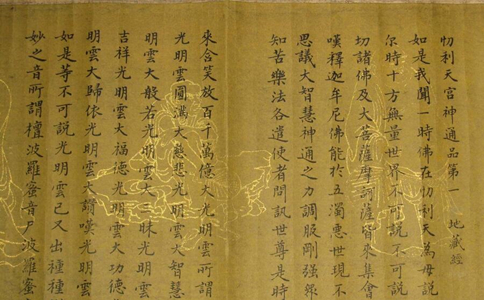 忉利天宮神通品第一 地藏經
如是我聞一時佛在忉利天為母說
尔時十方無量世界不可說不可說
切諸佛及大菩薩摩訶薩皆來集會
嘆釋迦牟尼佛能於五濁惡世現不
思議大智慧神通之力調服剛強眾
知苦樂法各遣使者問訊世尊是時
來含笑放百千萬億大光明雲所謂
光明雲圓滿大慈悲光明雲大智慧
明雲大般若光明雲大三昧光明雲
吉祥光明雲大福德光明雲大功德
明雲大歸依光明雲大讚嘆光明雲
如是等不可說光明雲已又出種種
妙之音所謂檀波羅蜜音尸波羅蜜